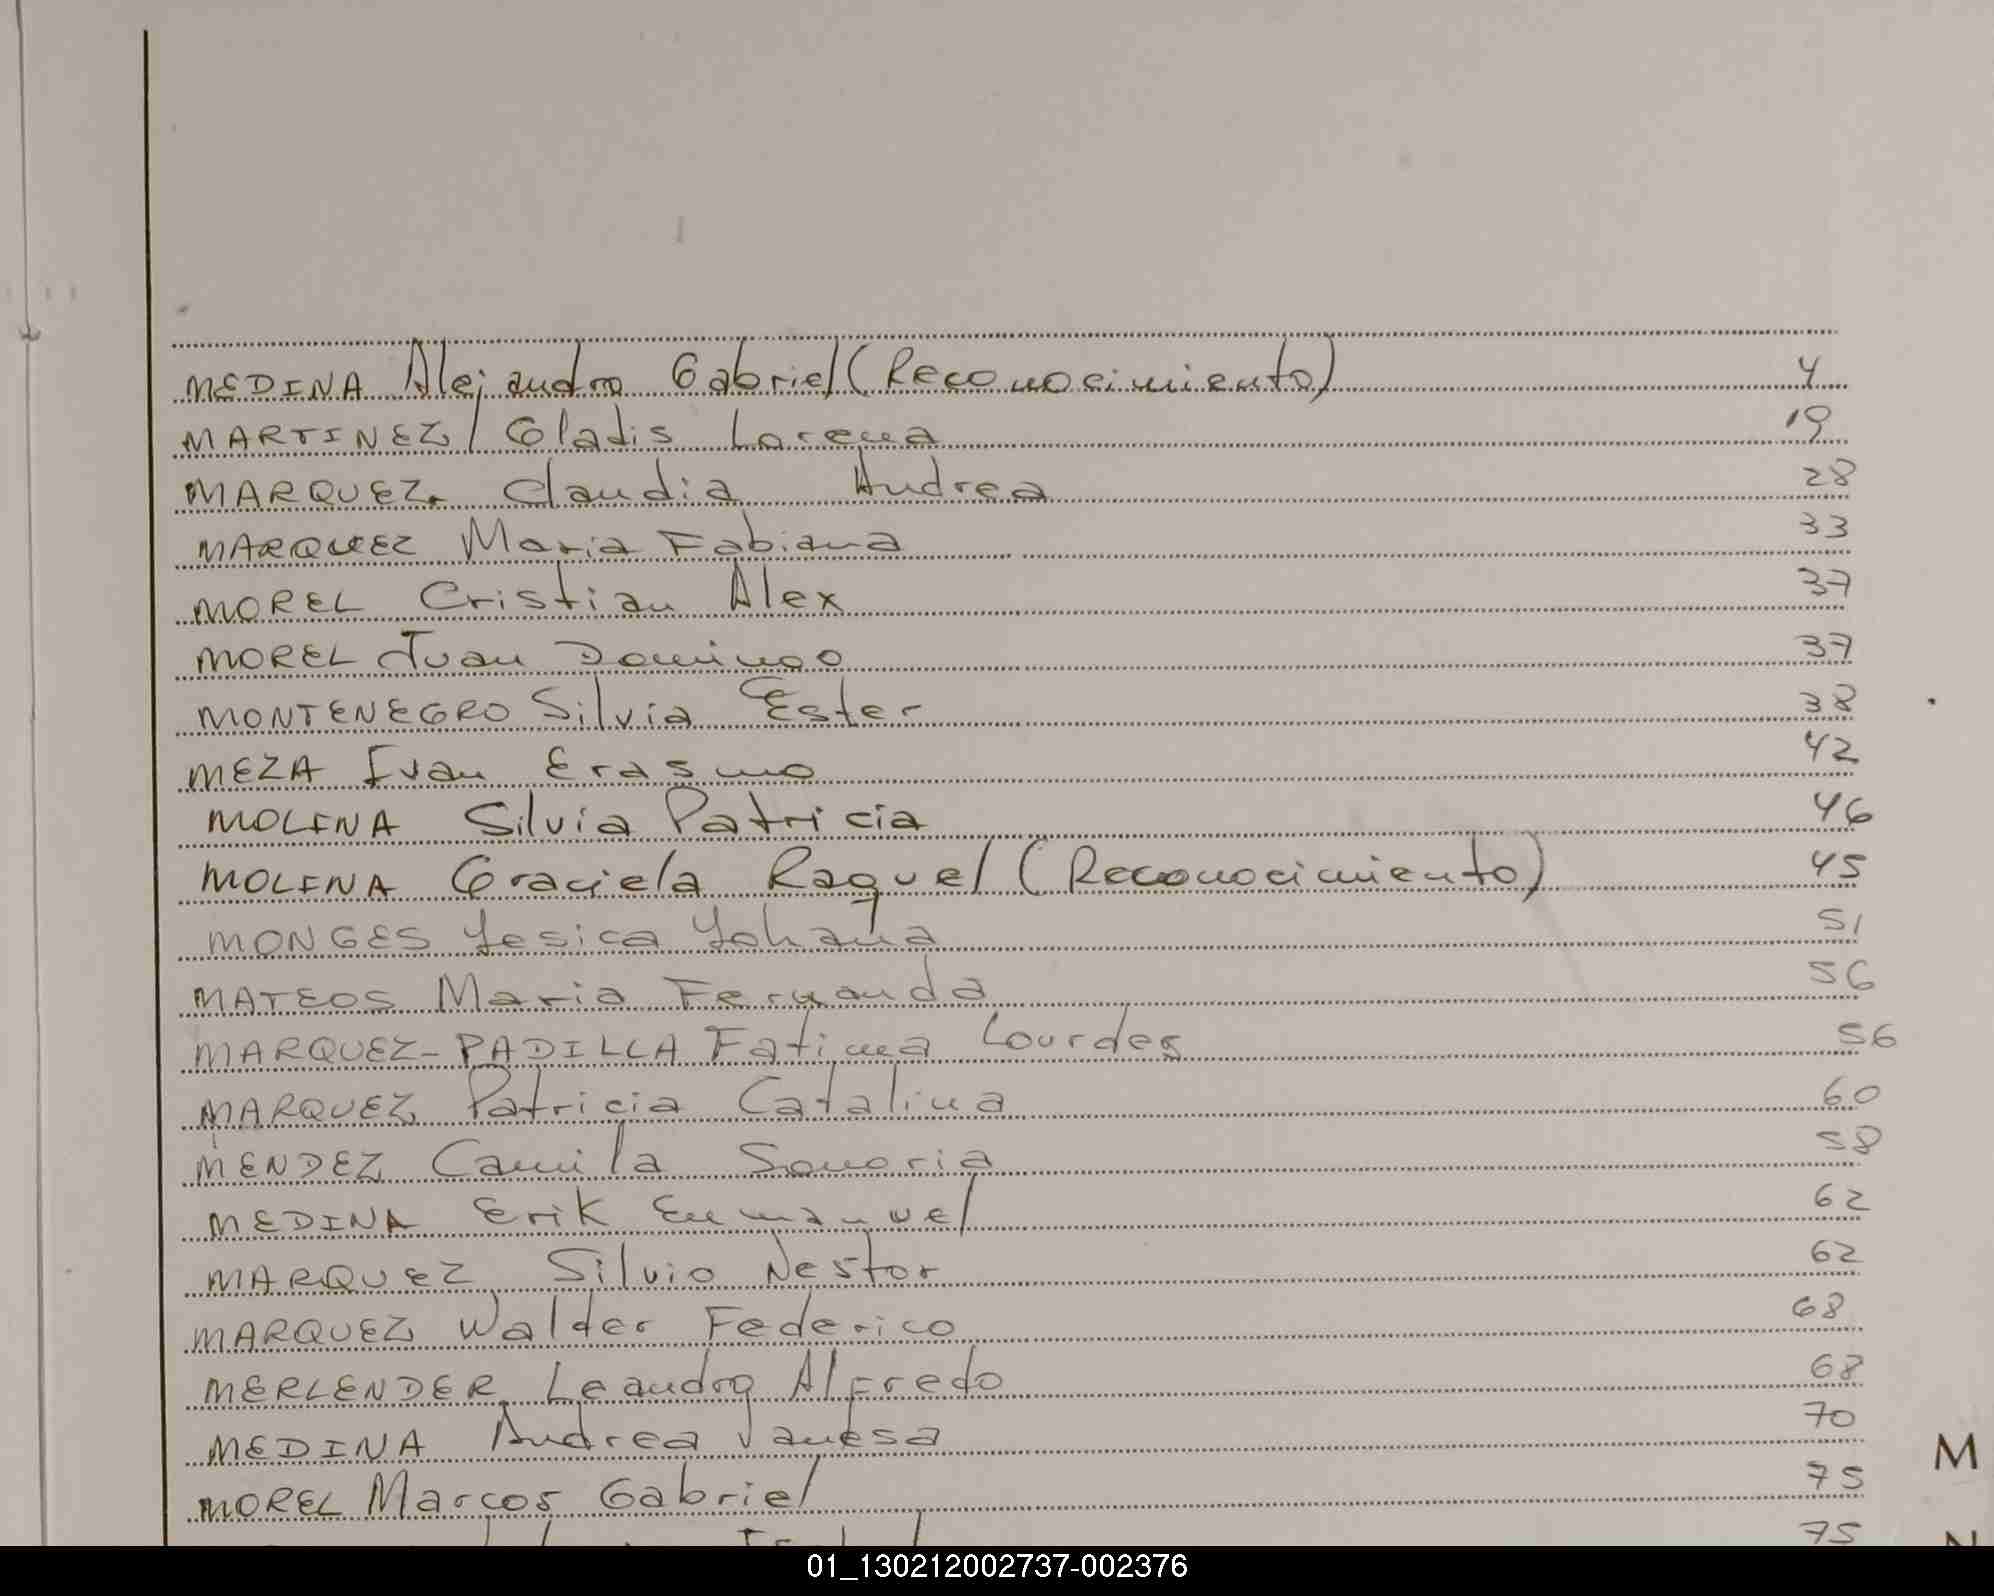 MEDINA Alejandro Gabriel (Reconocimiento) 4
MARTINEZ Gladis Lorena 19
MARQUEZ Claudia Andrea 28
MARQUEZ Maria Fabiana 33
MOREL Cristian Alex 37
MOREL Juan Domingo 37
MONTENEGRO Silvia Ester 38
MEZA Ivan Erasmo 42
MOLINA Silvia Patricia 46
MOLINA Graciela Raquel (Reconocimiento) 45
MONGES Yesica Yohana 51
MATEOS Maria Fernanda 56
MARQUEZ-PADILLA Fatima Lourdes 56
MARQUEZ Patricia Catalina 60
MENDEZ Camila Sonoria 58
MEDINA Erik Emmanuel 62
MARQUEZ Silvio Nestor 62
MARQUEZ Walder Federico 68
MERLENDER Leandro Alfredo 68
MEDINA Andrea Vanesa 70
M
MOREL Marcos Gabriel 75
75
01_130212002737-002376